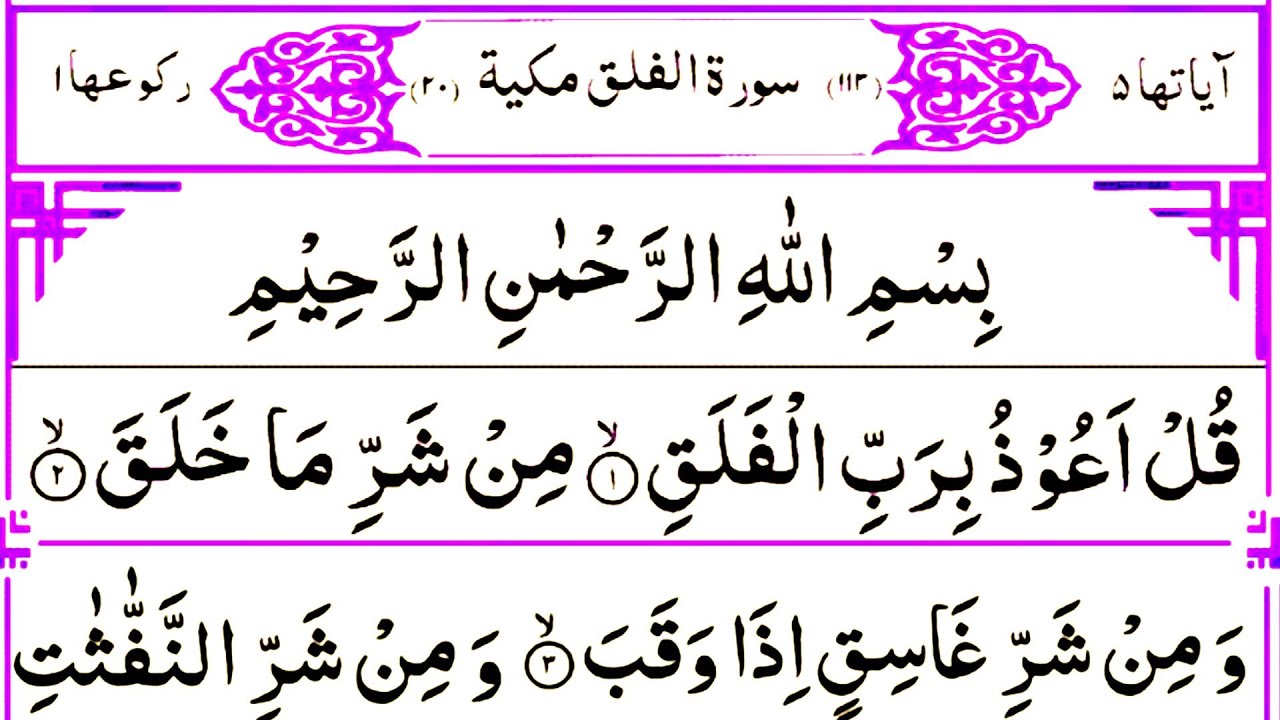 آیاتها ۵ (۱۱۳) سورة الفلق مكية (۲۰) ركوعها ۱
بِسْمِ اللّٰهِ الرَّحْمٰنِ الرَّحِيْمِ
قُلْ اَعُوْذُ بِرَبِّ الْفَلَقِ ۙ﴿۱﴾ مِنْ شَرِّ مَا خَلَقَ ۙ﴿۲﴾
وَ مِنْ شَرِّ غَاسِقٍ اِذَا وَقَبَ ۙ﴿۳﴾ وَ مِنْ شَرِّ النَّفّٰثٰتِ